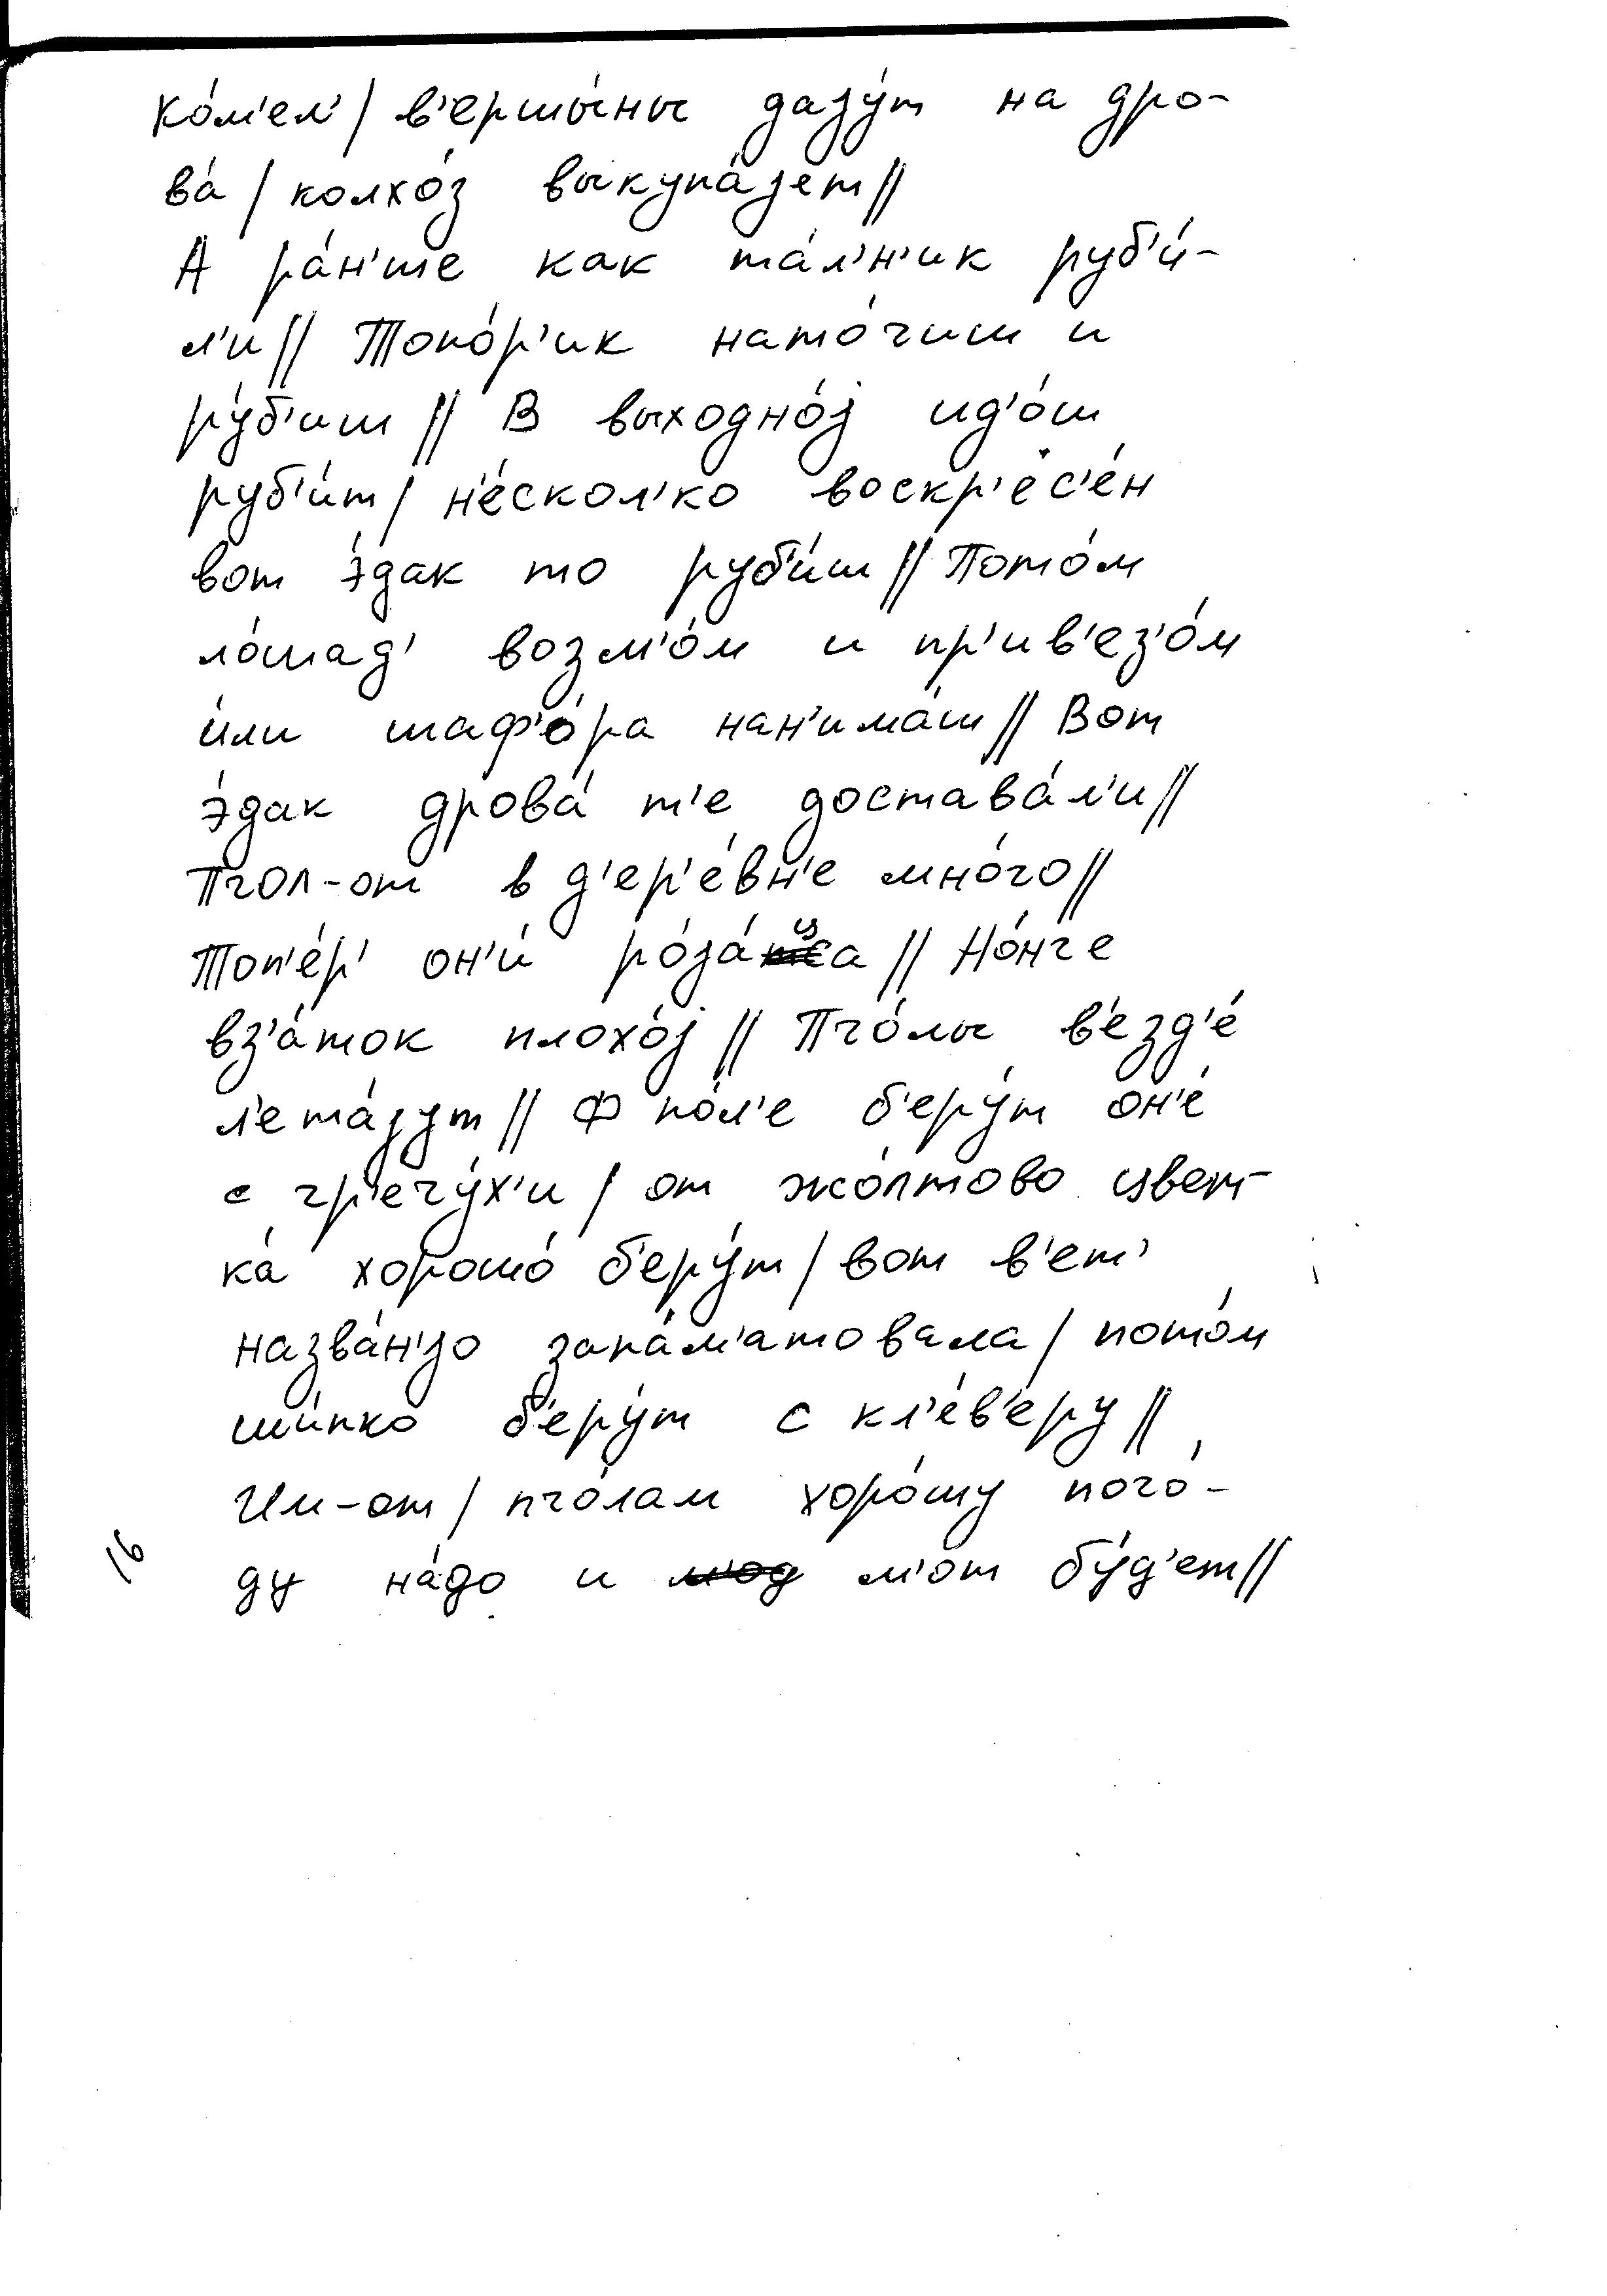 ко́м'ел' / в'ершы́ны даjу́т на дро-
ва́ / колхо́з выкупа́jет //
А ра́н'ше как та́л'н'ик руб'и́-
л'и // Топо́р'ик нато́чиш и
ру́б'иш // В выходно́j ид'о́ш
руб'и́т / н'е́скол'ко воскр'ес'е́н
вот э́дак то руб'и́ш // Пото́м
ло́шад' возм'о́м и пр'ив'ез'о́м
и́ли шаф'о́ра нан'има́ш // Вот
э́дак дрова́ т'е достава́л'и //
Пчол-от в д'ер'е́вн'е мно́го //
Топ'е́р' он'и́ ро́jа́ца // Но́нче
вз'а́ток плохо́j // Пчо́лы в'езд'е́
л'ета́jут // Ф по́л'е б'еру́т он'е́
с гр'ечу́х'и / от жо́лтово цвет-
ка́ хорошо́ б'еру́т / вот в'ет'
назва́н'jо запа́м'атовала / пото́м
ши́пко б'еру́т с кл'е́в'еру //
Им-от / пчо́лам хоро́шу пого́-
ду на́до и м'од м'от бу́д'ет //
16